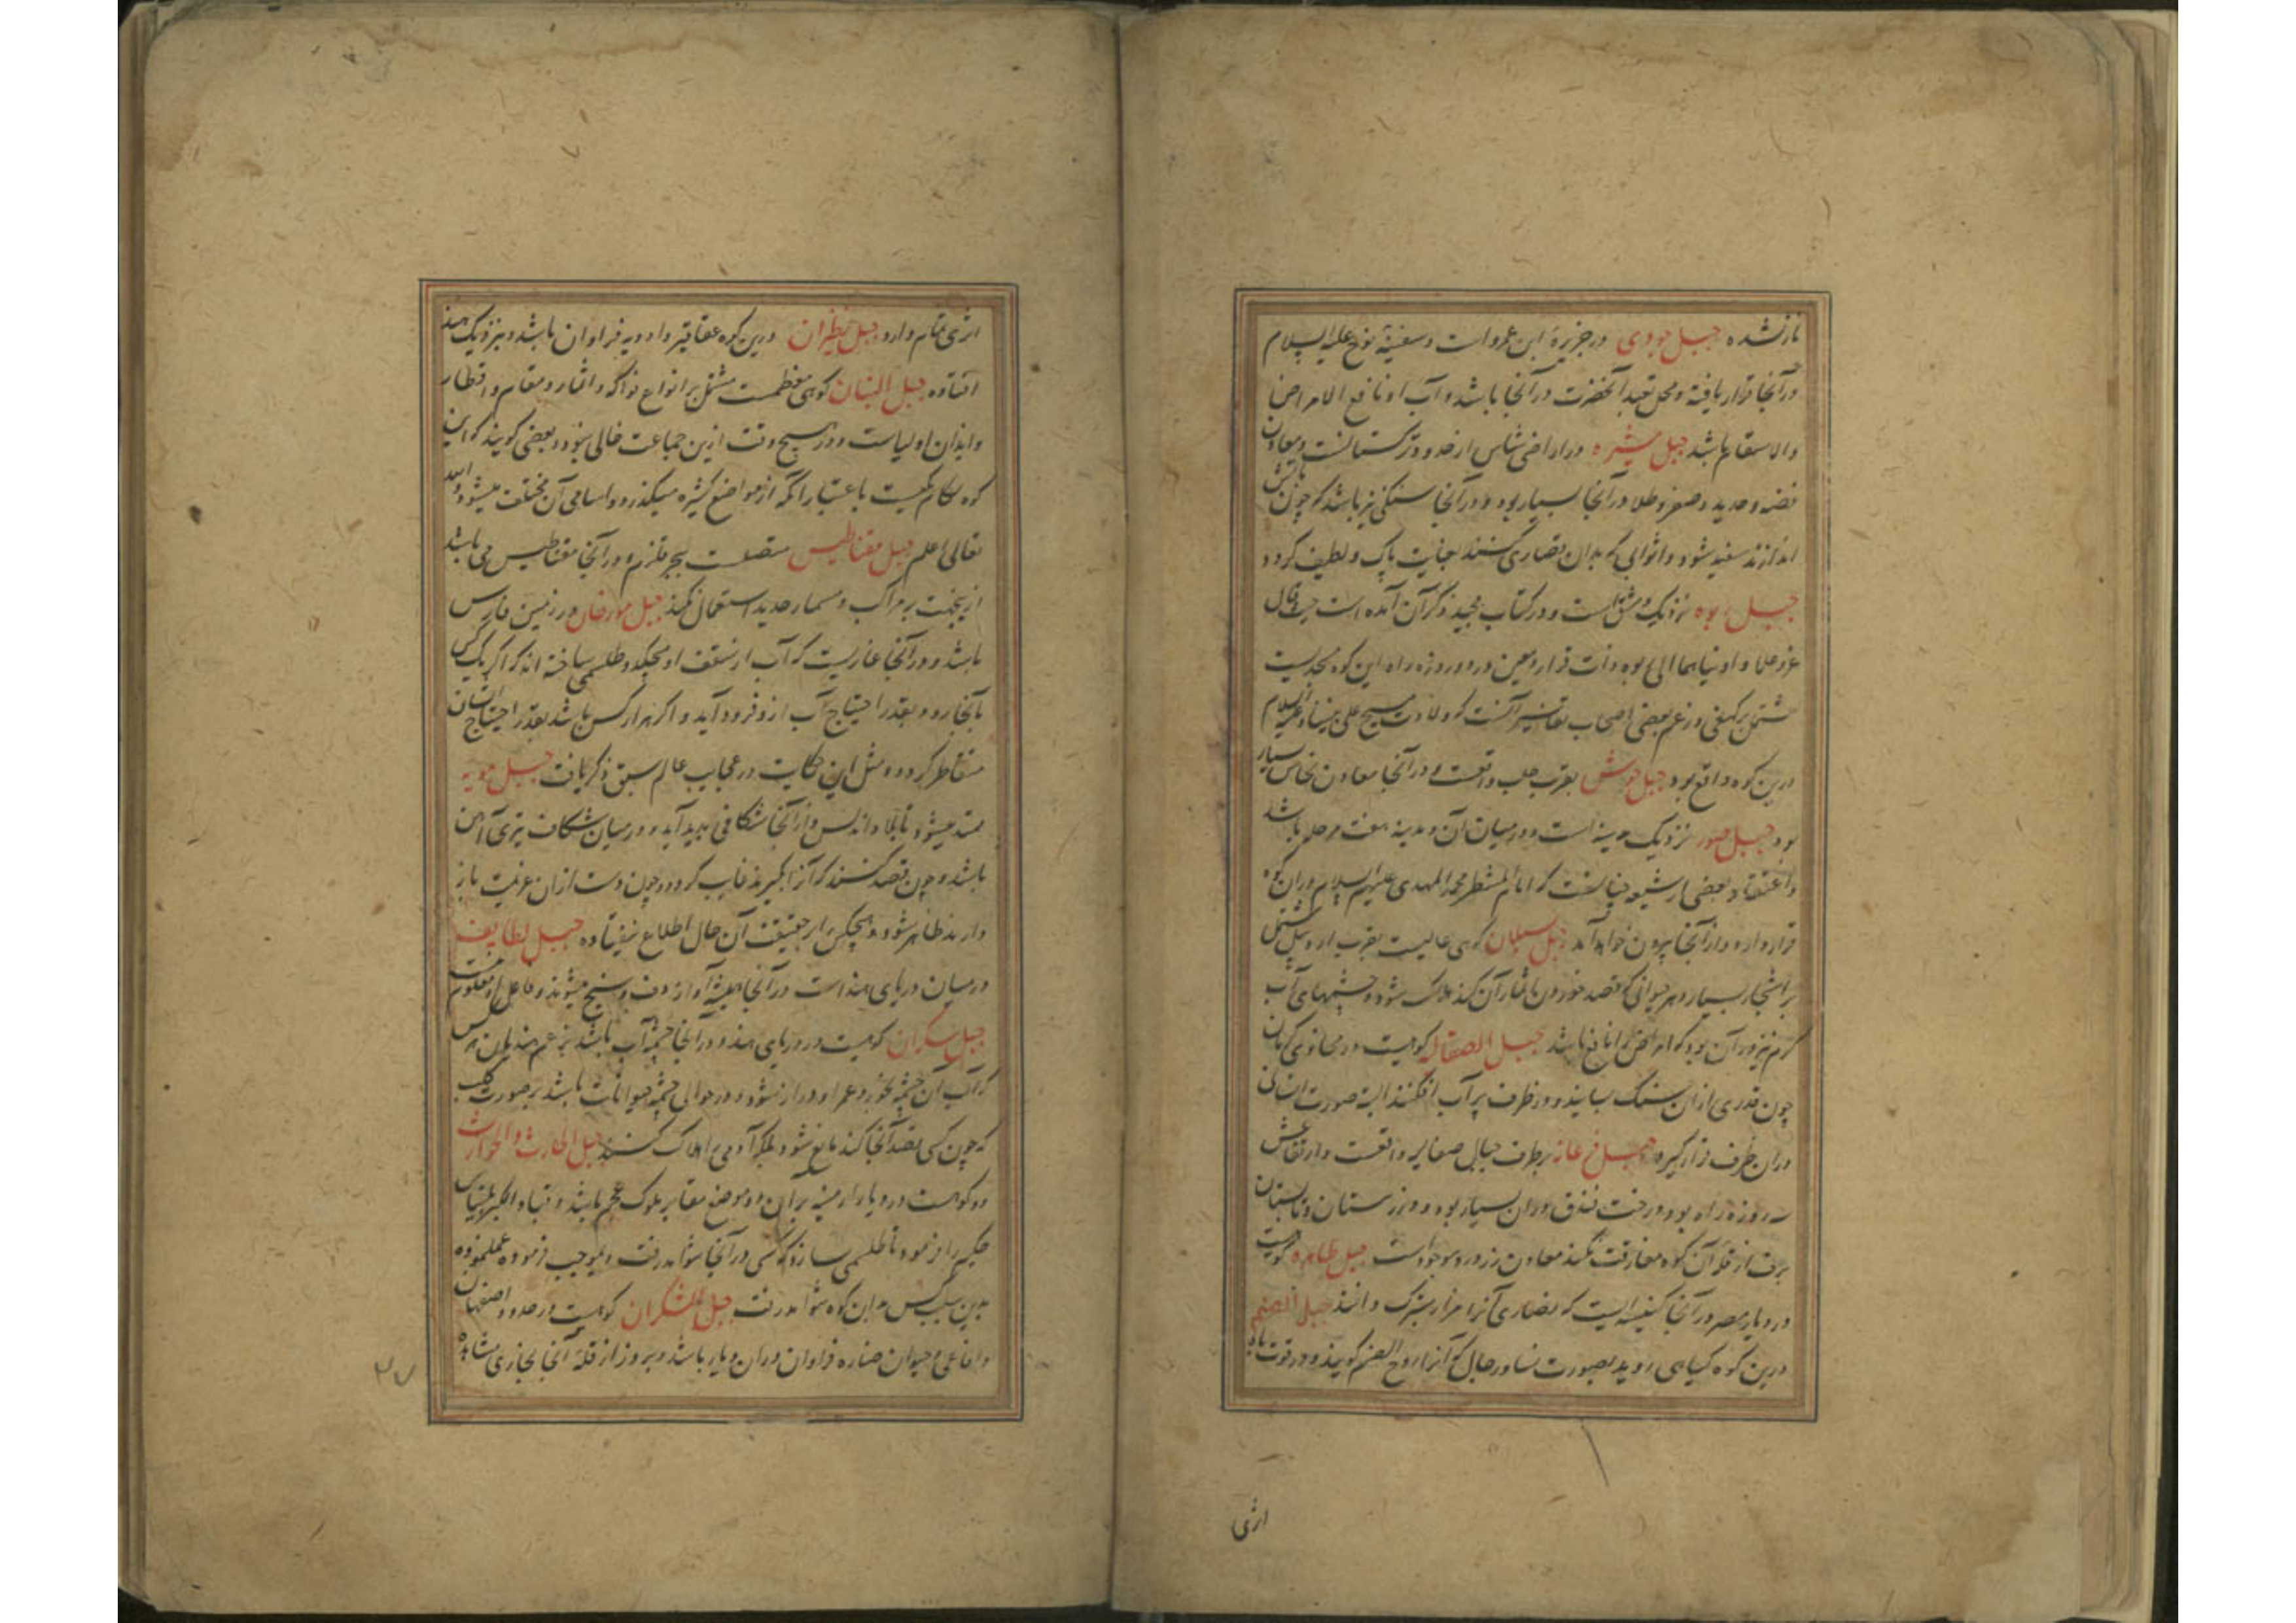 باز نشده جبل جودی در جزیرهٔ ابن عمرو است و سفینهٔ نوح علیه السلام
در آنجا قرار یافته و محل تعبد آنحضرت در آنجا باشد و آب او نافع الامراض
والاسقام باشد جبل در اراضی شاس از حدود ترکستانست و معادن
فضه و حدید و صفر و طلا در آنجا بسیار بود و در آنجا سنگی نیز باشد که چون بآتش
اندازند سفید شود و اثوابی که بدان قصاری کنند بغایت پاک و لطیف گردد
جبل ربوه نزدیک دمشق است و در کتاب مجید ذکر آن آمده است حیث قال
عز و علا و اوینا هما الی ربوه ذات قرار و معین در دو روزه راه این کوه مسجدیست
مشتمل بر کهفی و زعم بعضی اصحاب تفاسیر آنست که ولادت مسیح علی نبینا و علیه السلام
درین کوه واقع بود جبل جوش بقرب حلب واقعست و در آنجا معادن نحاس بسیار
بود جبل نزدیک مدینه است و در میان آن و مدینه هفت مرحله باشد
و اعتقاد بعضی از شیعه چنانست که امام المنتظر محمد المهدی علیهم السلام در ان کوه
قرار دارد و از آنجا بیرون خواهد آمد جبل سبلان کوهی عالیست بقرب اردبیل مشتمل
بر اشجار بسیار و هر حیوانی که قصد خوردن باثمار آن کند هلاک شود و چشمهای آب
گرم نیز در آن بود که امراض را نافع باشد جبل کوهیست در محاذی کرمان
چون قدری از ان سنگ بسایند و در ظرف پر آب افکنند البته صورت انسانی
در ان ظرف قرار گیرد جبل فرغانه بر طرف جبال واقعست و ارتفاعش
سه روزه راه بود و درخت فندق در ان بسیار بود و در زمستان و تابستان
برف از قلهٔ آن کوه مفارقت نکند و معادن زر در و موجودست جبل طاهره کوهیست
در دیار مصر در آنجا کنیسه ایست که نصاری آنرا مزار متبرک دانند جبل الصنم
درین کوه گیاهی روید بصورت نسا و رجال که آنرا یبروح الصنم گویند و در قوت باه
اثری
اثری تمام دارد جبل درین کوه عقاقیر و ادویه فراوان باشد و نزدیک هند
افتاده جبل اللبنان کوهی معظمست مشتمل بر انواع فواکه و اثمار و مقام و اقطار
و ابدان اولیاست و در هیچ وقت ازین جماعت خالی نبود و بعضی گویند که این
کوه لکام یکیست باعتبار آنکه از مواضع کثیره میگذرد و اسامی آن مختلف میشود والله
تعالی اعلم جبل مغناطیس متصلست ببحر قلزم و در آنجا مغناطیس می باشد
ازینجهت بر مراکب و مسمار حدید استعمال نکنند جبل مورجان در زمین فارس
باشد و در آنجا غاریست که آب از سقف او میچکد و طلسمی ساخته اند که اگر یک کس
بآنجا رود بقدر احتیاج آب ازو فرود آید و اگر هزار کس باشد بقدر احتیاج ایشان
متقاطر گردد و مثل این حکایت در عجایب عالم سبق ذکر یافت جبل
ممتد میشود تا بلاد اندلس و از آنجا شکافی پدید آید و در میان شکاف تبری آهن
باشد و چون قصد کنند که آنرا بگیرند غایب گردد و چون دست از ان عزیمت باز
دارند ظاهر شود و هیچکس را بر حقیقت آن حال اطلاع نیفتاده جبل لطایف
در میان دریای هند است در آنجا همیشه آواز دف و سنج میشنوند و فاعل او معلوم نیست
جبل سکران کوهیست در دریای هند و در آنجا چشمه آب باشد بزعم هندیان هر کس
که آب آن چشمه بخورد عمر او دراز شود و در حوالی چشمه حیوانات باشد بر صورت کلب
که چون کسی قصد آنجا کند مانع شود بلکه آدمی را هلاک کنند جبل الحارث و الحوارث
دو کوهست در دیار ارمنیه بر ان دو موضع مقابر ملوک عجم باشد و قباد اکبر بلیناس
حکیم را فرمود تا طلسمی سازد که کسی در آنجا نتواند رفت و بموجب فرموده عمل نموده
بدین سبب کس بدان کوه نتواند رفت جبل الشکران کوهیست در حدود اصفهان
و افاعی و حیوان ضاره فراوان در ان دیار باشد و بروز از قلهٔ آنجا بخاری مشاهده